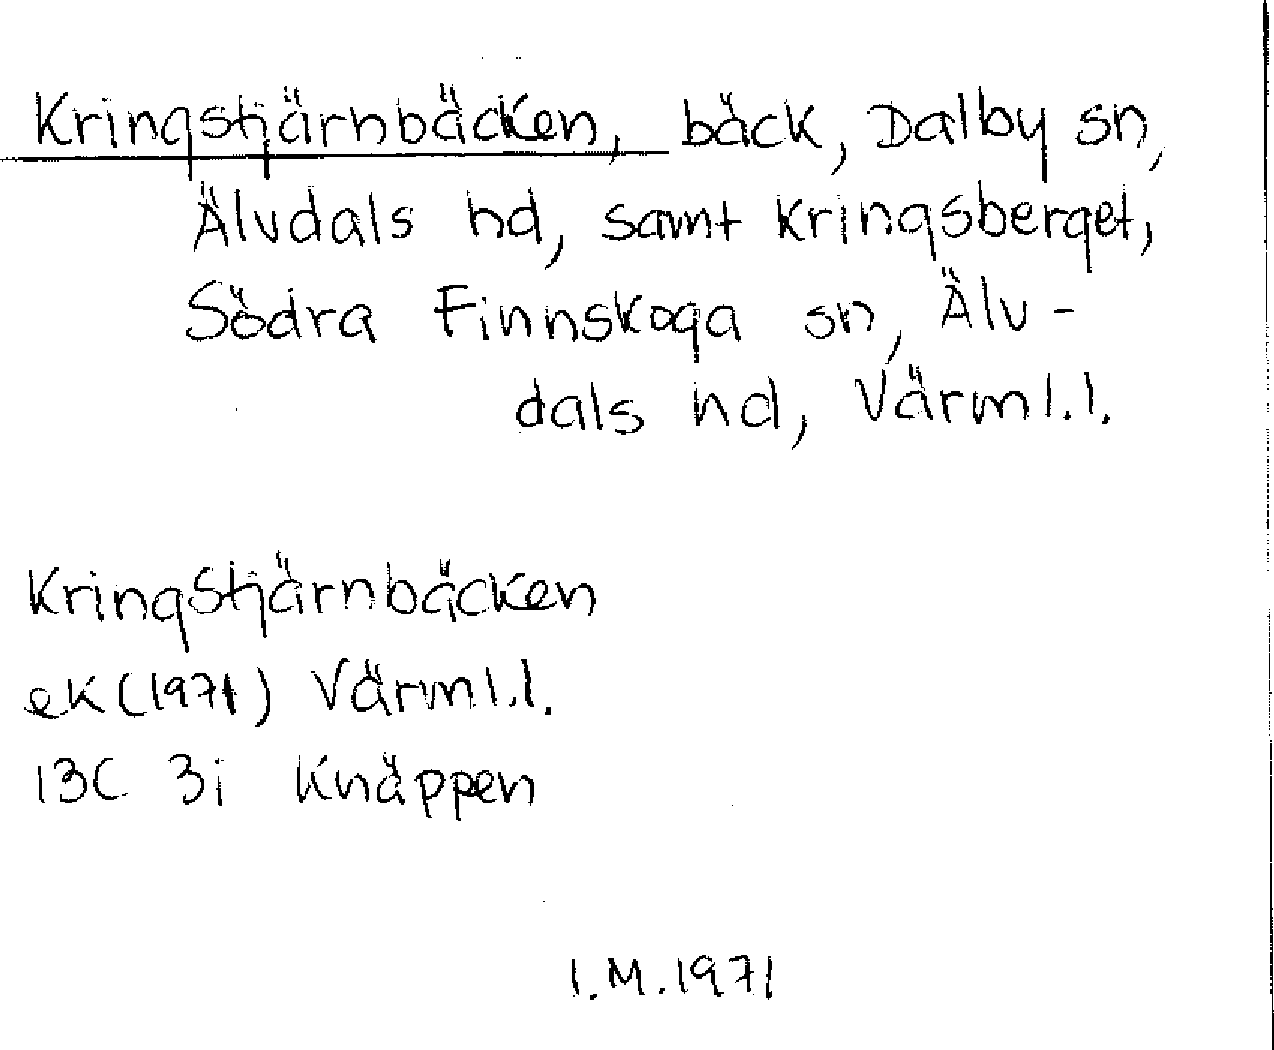 Kringstjärnbäcken, bäck, Dalby sn,
Älvdals hd, samt Kringsberget,
Södra Finnskoga sn, Älv-
dals hd, Värml.l.
Kringstjärnbäcken
ek(1971) Värml.l.
13C 3i Knäppen
I.M.1971